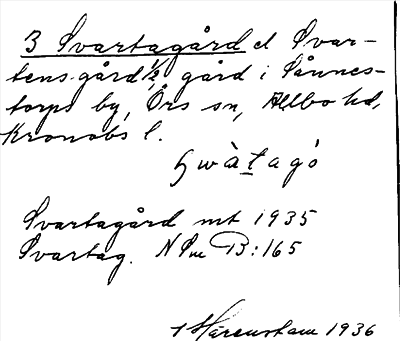 3 Svartagård el Svar-
tensgård ½, gård i Sånnes-
torps by, Örs sn, Allbo hd,
Kronobs l.
Svartagård mt 1935
Svartag. NSm B:165
Härenstam 1936